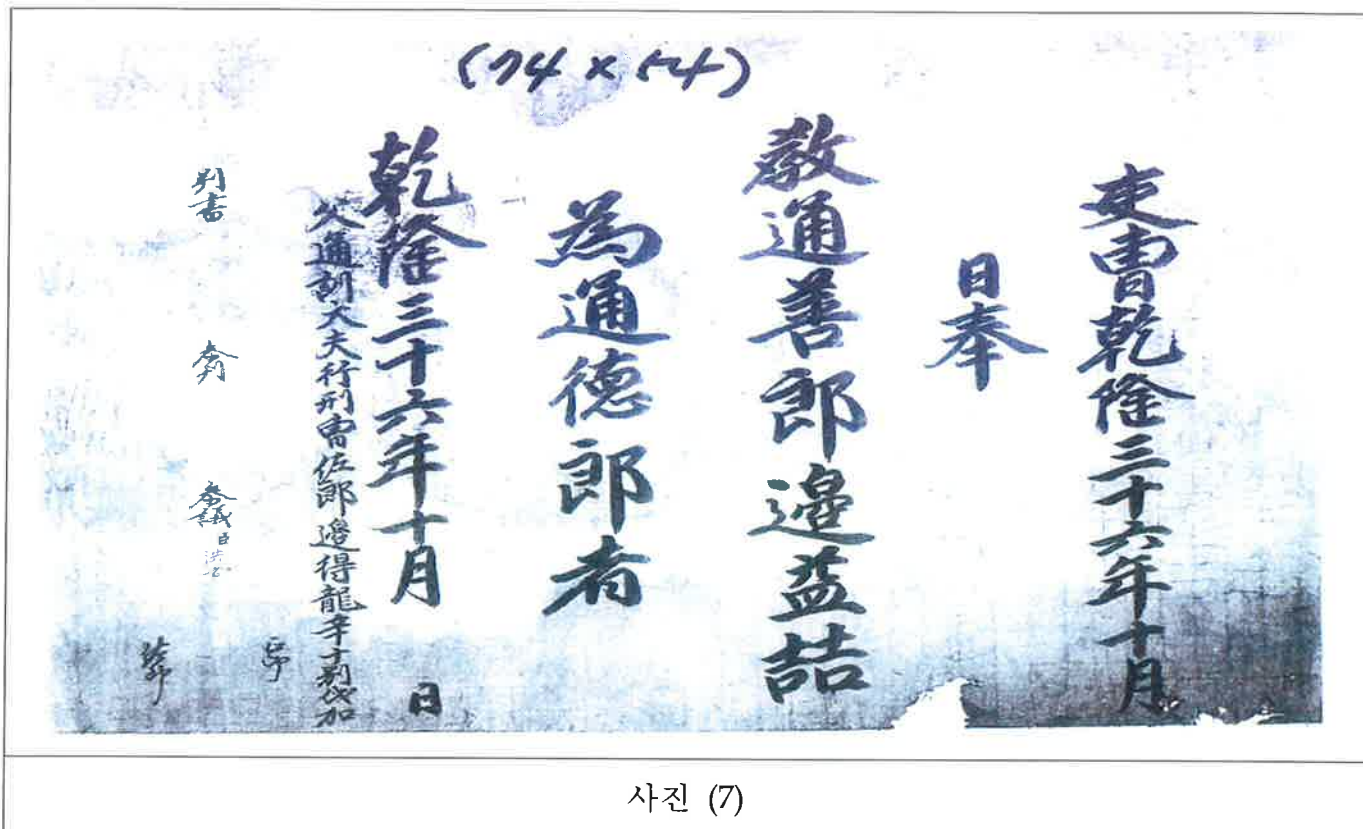 (74 x 54)
吏曹乾隆三十六年十月
日奉
敎通善郎邊益喆
為通德郎者
乾隆三十六年十月 日
父通訓大夫行刑曹佐郎邊得龍辛 別代加
判書 參判 參議
사진 (7)